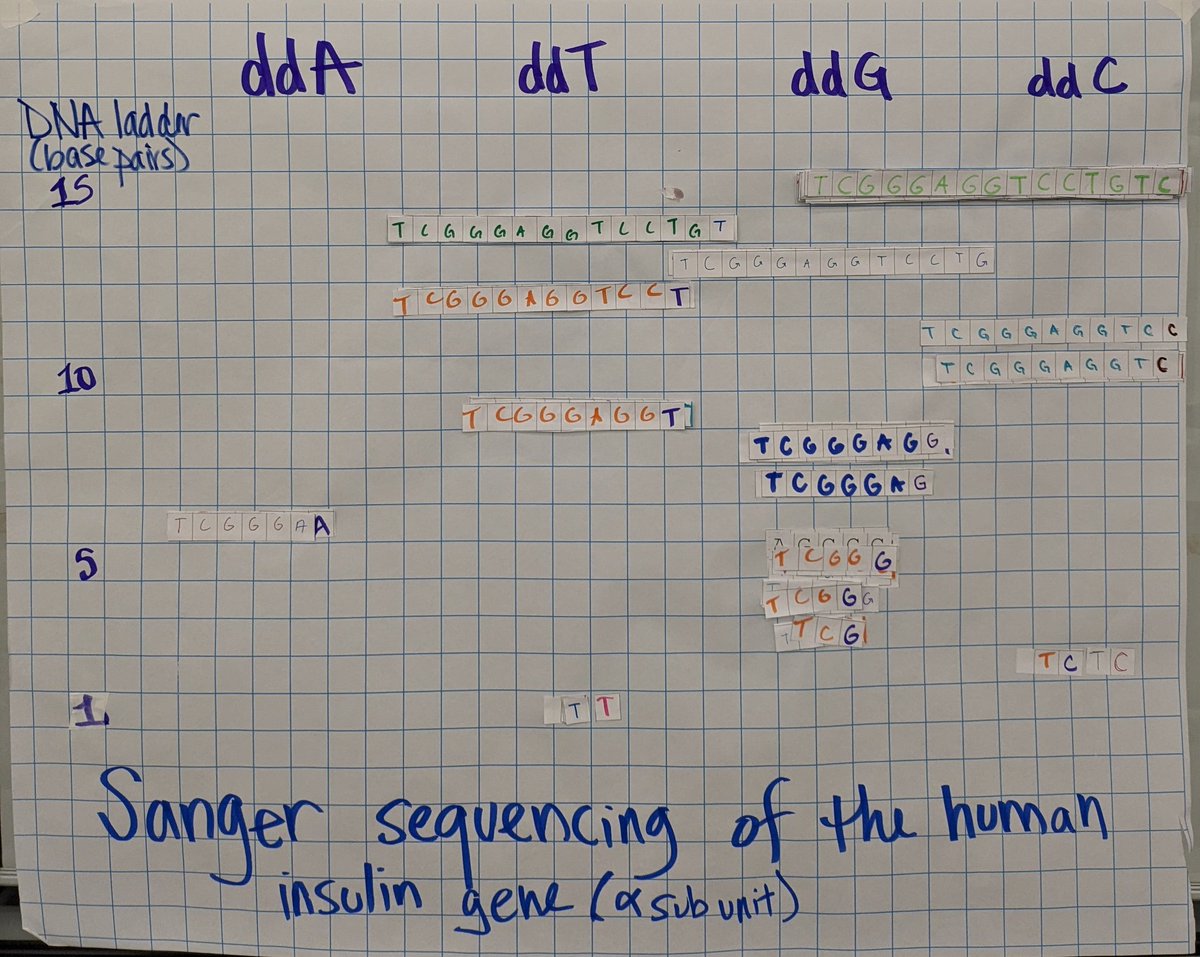 ddA ddT ddG ddC
DNA ladder
(base pairs)
15 TCGGGAGGTCCTGTC
TCGGGAGGTCCTGT
TCGGGAGGTCCTG
TCGGGAGGTCCT
TCGGGAGGTCC
10 TCGGGAGGTC
TCGGGAGGT
TCGGGAGG
TCGGGAG
TCGGGAA
5 TCGGG
TCGGG
TCG
TCTC
1 TT
Sanger sequencing of the human
insulin gene (α subunit)